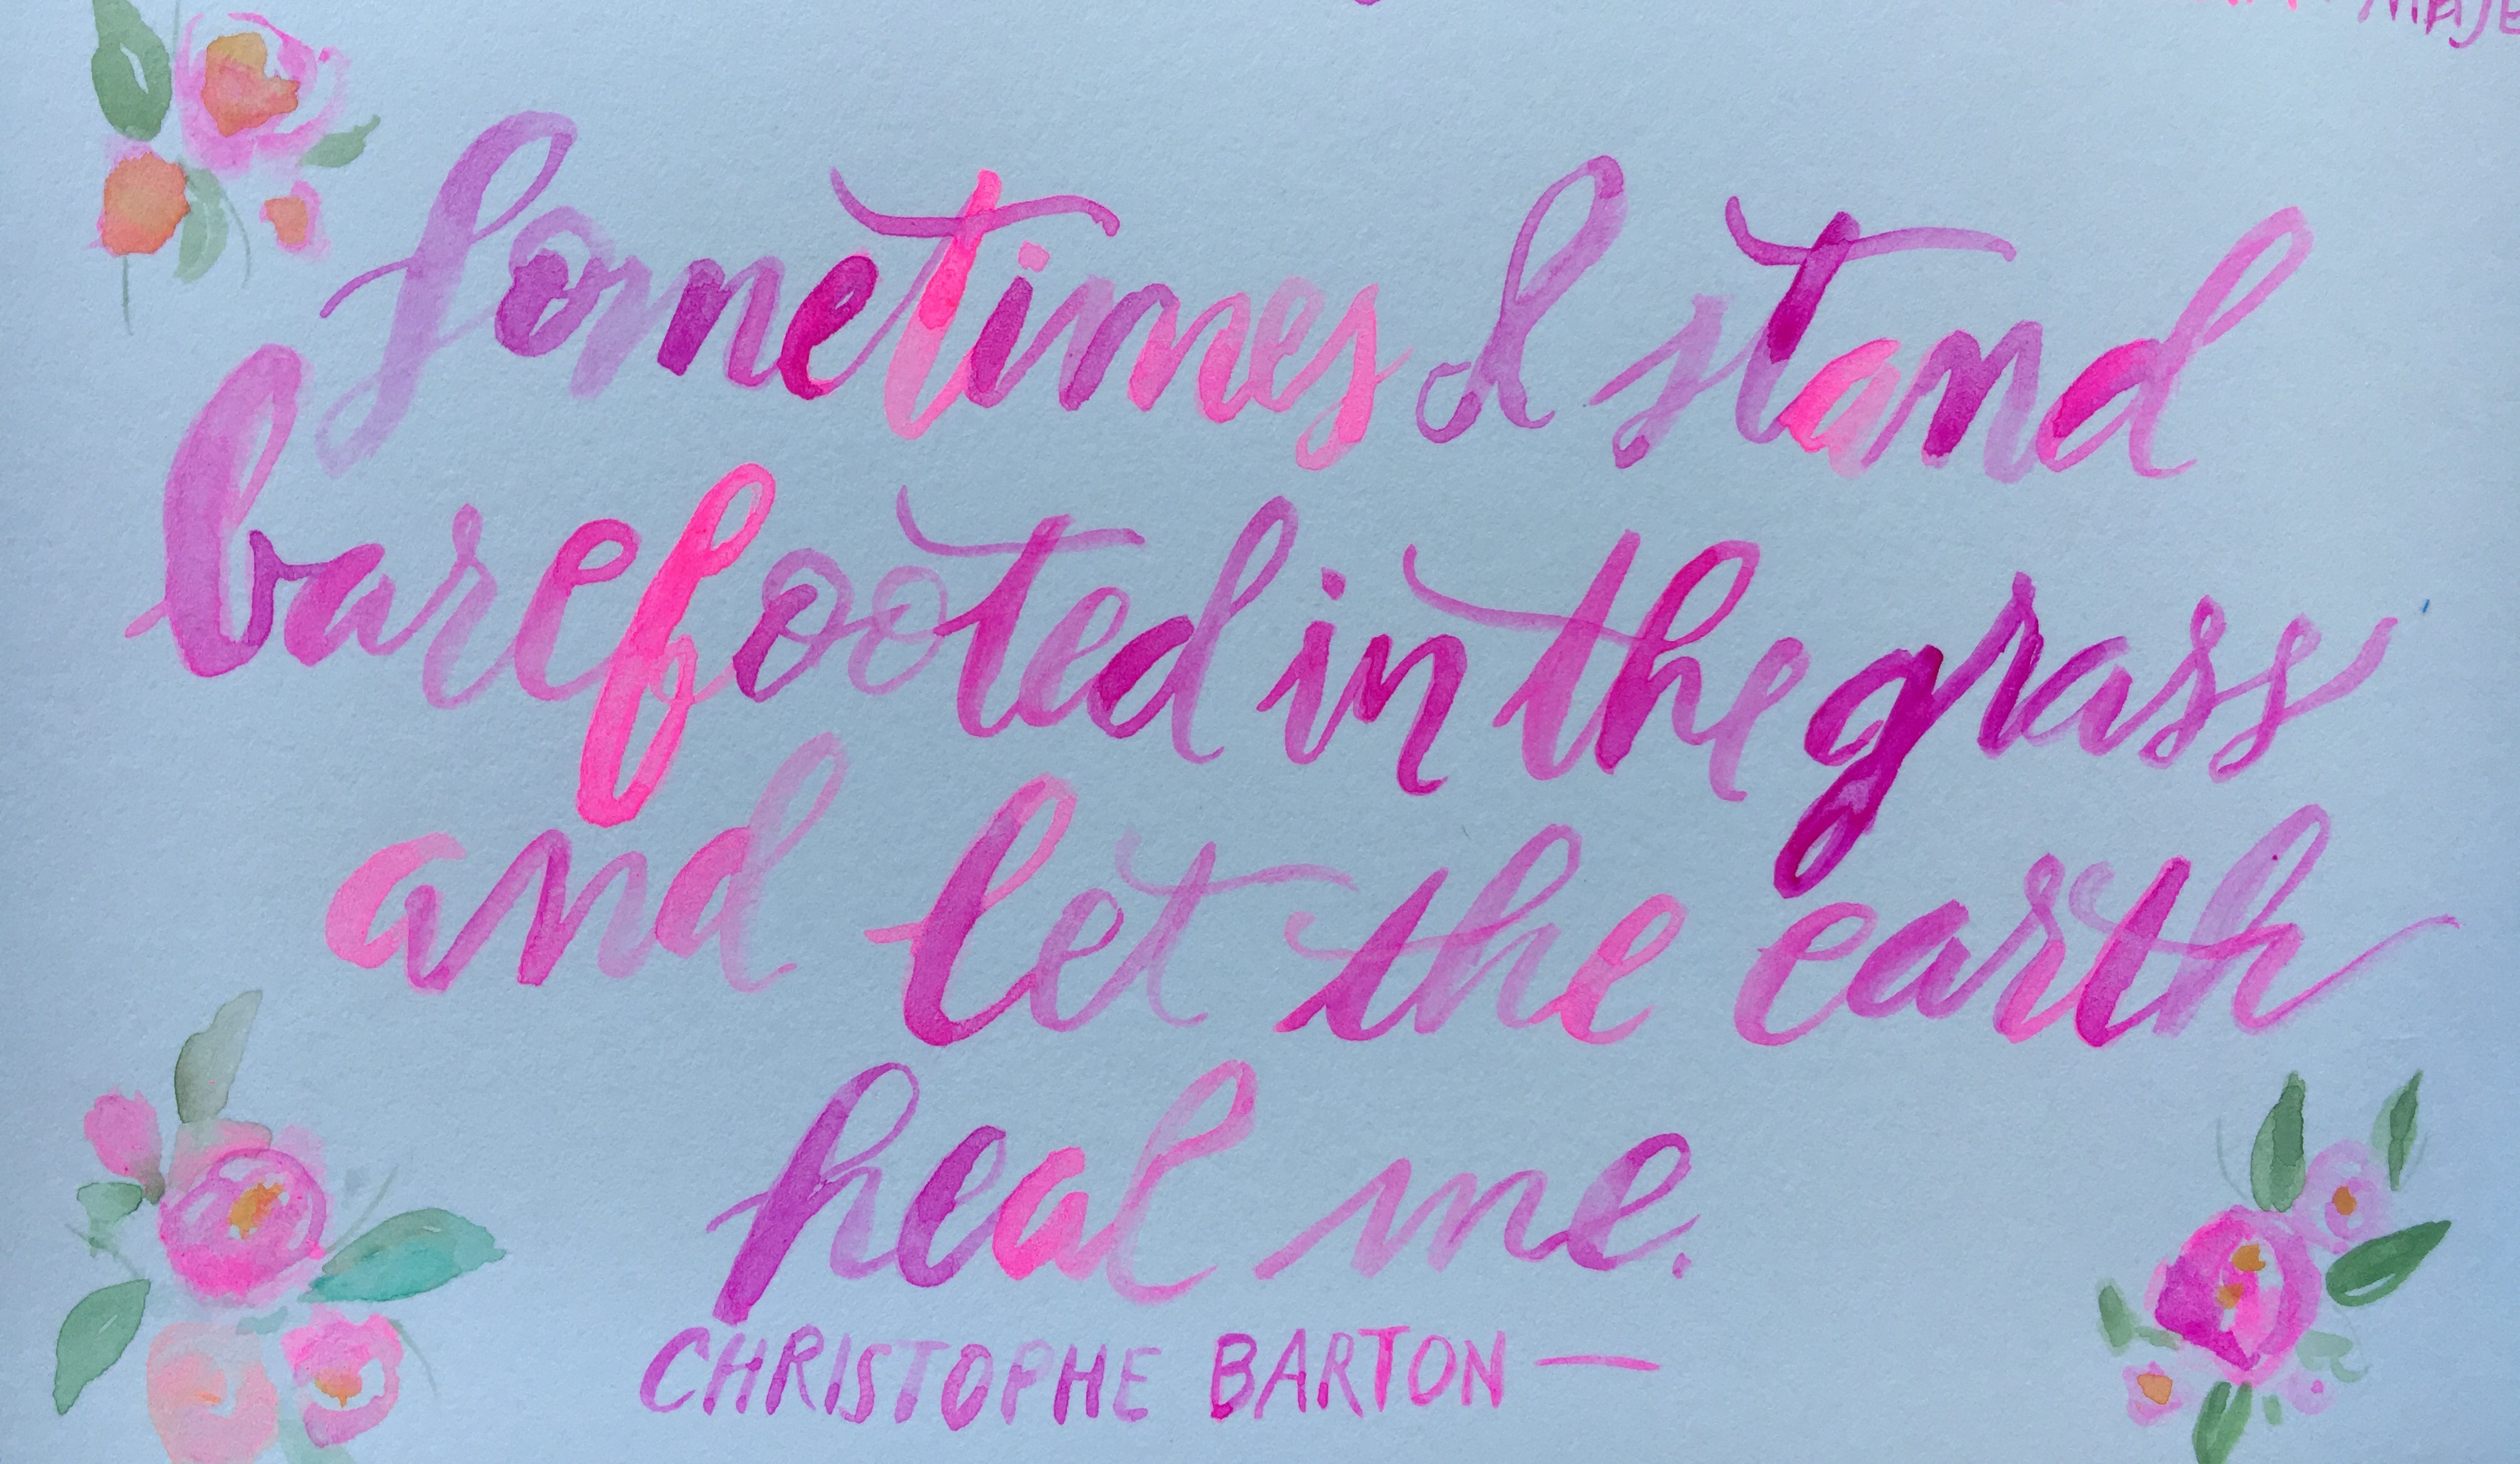 Sometimes I stand
barefooted in the grass
and let the earth
heal me.
CHRISTOPHE BARTON —